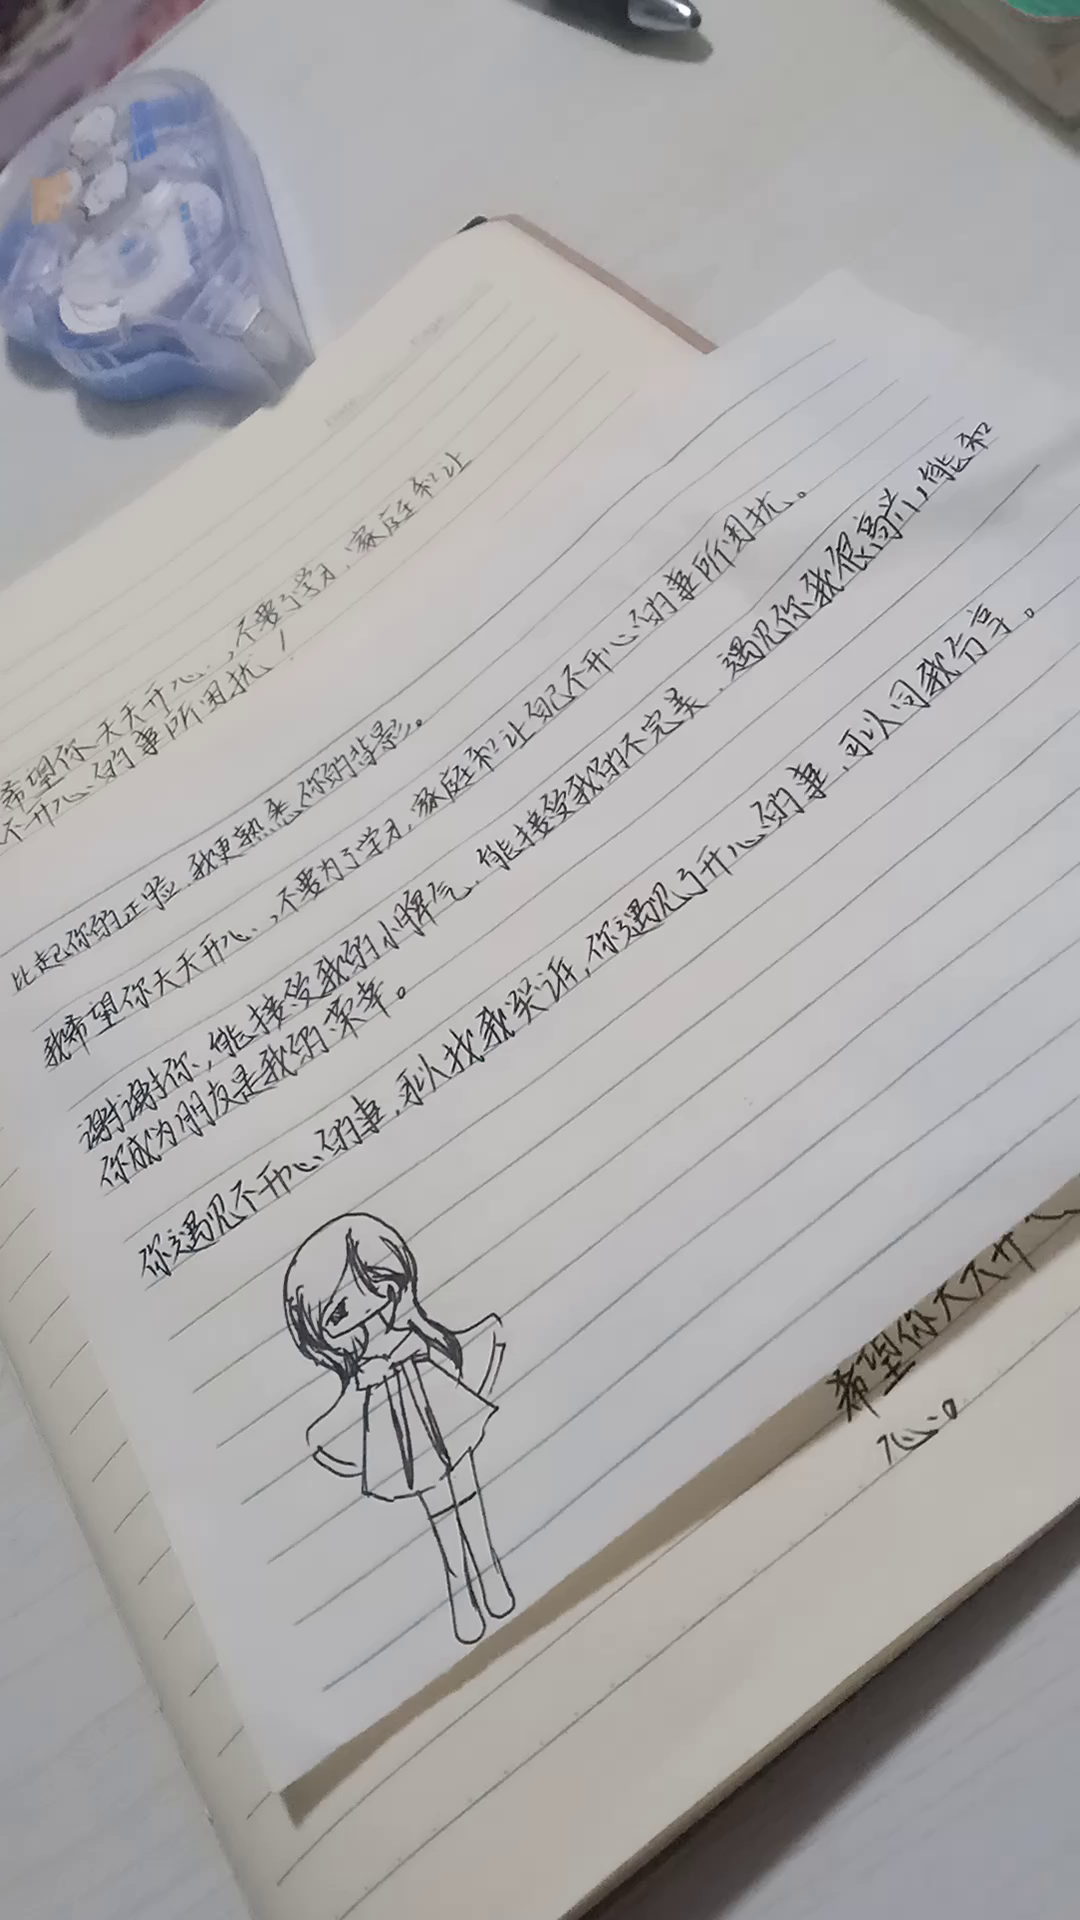 希望你天天开心，不要为了学习，家庭和让
不开心的事所困扰！
比起你的正脸，我更熟悉你的背影。
我希望你天天开心，不要为了学习，家庭和让自己不开心的事所困扰。
谢谢你，能接受我的小脾气，能接受我的不完美，遇见你我很高兴，能和
你成为朋友是我的荣幸。
你遇见不开心的事，可以找我哭诉，你遇见了开心的事，可以同我分享。
希望你天天开
心。